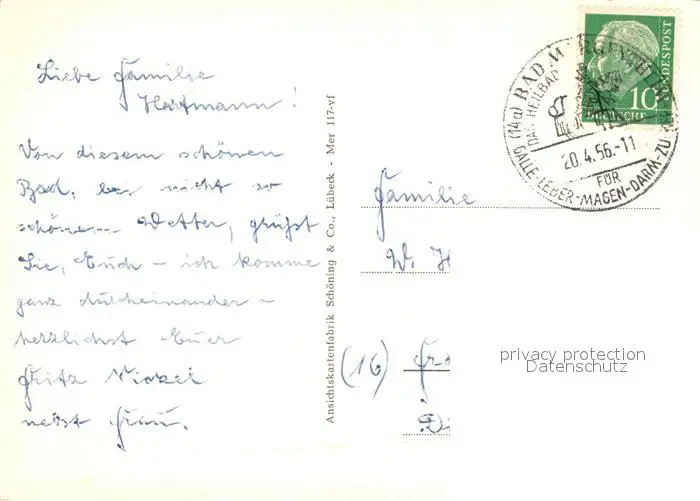 Liebe Familie
Hartmann!
Von diesem schönen
Bad, bei nicht so
schönem Wetter, grüßt
Sie, Euch – ich komme
ganz durcheinander –
herzlichst Euer
Fritz
nebst Frau.
Ansichtskartenfabrik Schöning & Co., Lübeck - Mer 117-vf
Familie
W. H
(16)
(14a) BAD MERGENTHEIM
DAS HEILBAD
20.4.56.-11
FÜR
GALLE-LEBER-MAGEN-DARM-ZU
10
DEUTSCHE BUNDESPOST
privacy protection
Datenschutz